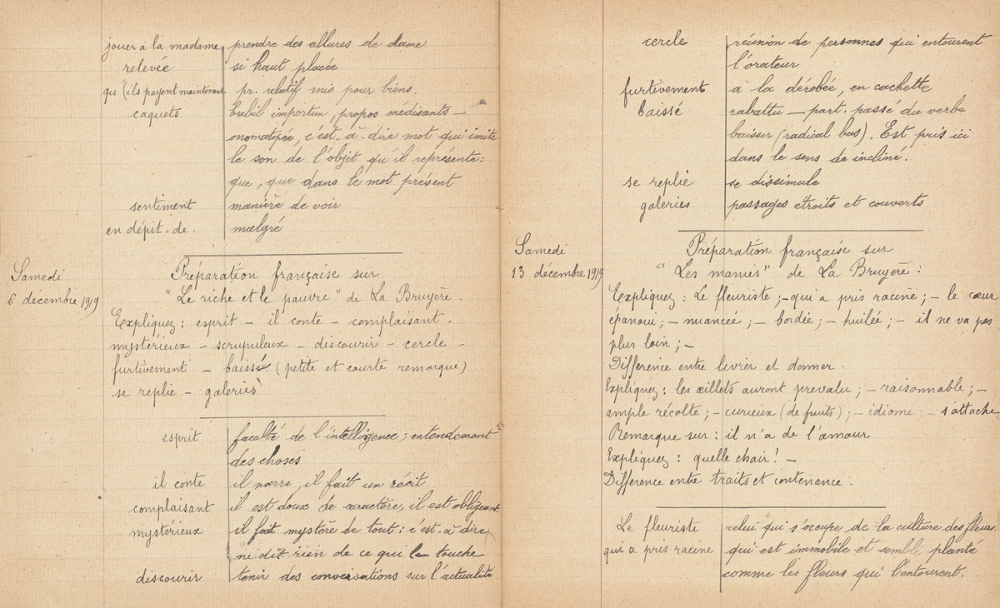 jouer à la madame prendre des allures de dame
relevée si haut placée
qu (ils payent maintenant pr. relatif mis pour biens.
caquets babil importun, propos médisants —
onomatopée, c'est-à-dire mot qui imite
le son de l'objet qu'il représente:
que, que dans le mot présent
sentiment manière de voir
en dépit-de. malgré
Samedi
6 décembre 1919
Préparation française sur
"Le riche et le pauvre" de La Bruyère.
Expliquez: esprit — il conte — complaisant —
mystérieux — scrupuleux — discourir — cercle —
furtivement — baissé (petite et courte remarque)
se replie — galeries
esprit faculté de l'intelligence; entendement
des choses
il conte il narre, il fait un récit
complaisant il est doux de caractère, il est obligeant
mystérieux il fait mystère de tout: c'est-à-dire
ne dit rien de ce qui le touche
discourir tenir des conversations sur l'actualité
cercle réunion de personnes qui entourent
l'orateur
furtivement à la dérobée, en cachette
baissé rabattu — part. passé du verbe
baisser (radical bas). Est pris ici
dans le sens de incliné.
se replie se dissimule
galeries passages étroits et couverts
Samedi
13 décembre 1919
Préparation française sur
"Les manies" de La Bruyère:
Expliquez: Le fleuriste; — qui a pris racine; — le cœur
épanoui; — nuancée; — bordée; — huilée; — il ne va pas
plus loin; —
Différence entre livrer et donner.
Expliquez: les œillets auront prévalu; — raisonnable; —
ample récolte; — curieux (de fruits); — idiome; — s'attache
Remarque sur: il n'a de l'amour
Expliquez: quelle chair! —
Différence entre traits et contenance.
Le fleuriste celui qui s'occupe de la culture des fleurs
qui a pris racine qui est immobile et semble planté
comme les fleurs qui l'entourent.